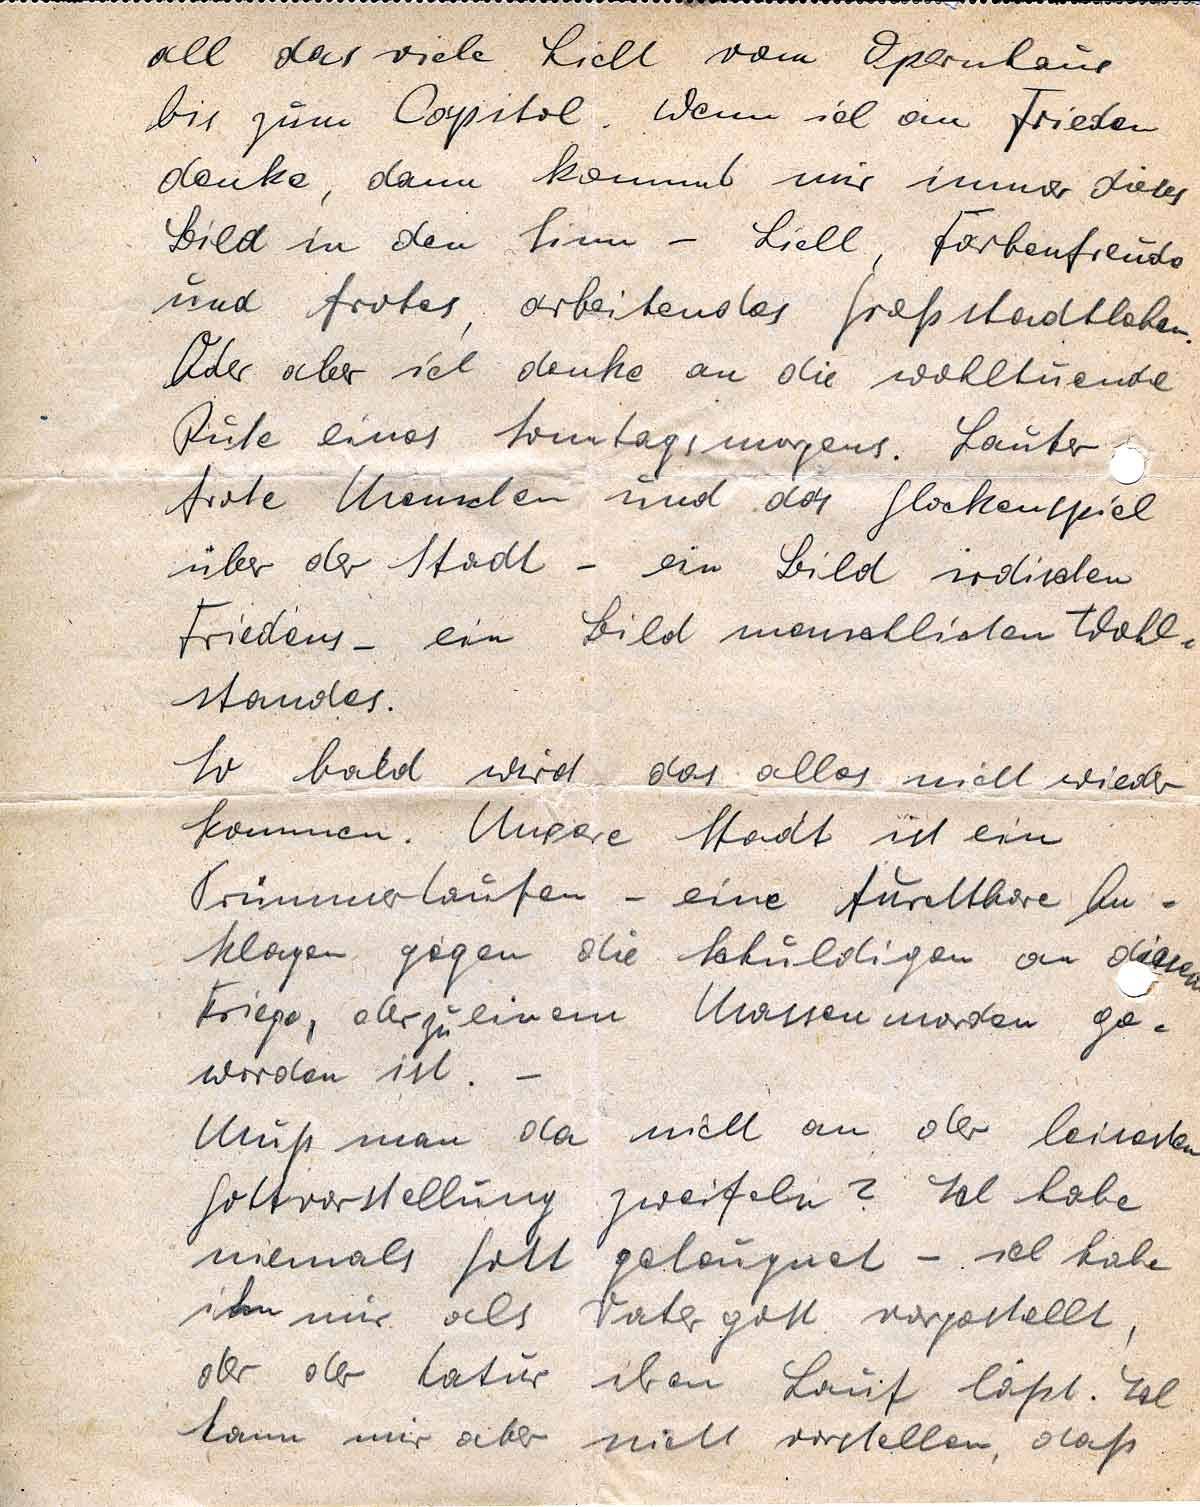 all das viele Licht vom Opernhaus
bis zum Capitol. Wenn ich an Frieden
denke, dann kommt mir immer dieses
Bild in den Sinn - Licht, Farbenfreude
und frohes, arbeitendes Großstadtleben.
Oder aber ich denke an die wohltuende
Ruhe eines Sonntagsmorgens. Lauter
frohe Menschen und das Glockenspiel
über der Stadt - ein Bild irdischen
Friedens - ein Bild menschlichen Wohl-
standes.
So bald wird das alles nicht wieder
kommen. Unsere Stadt ist ein
Trümmerhaufen - eine furchtbare An-
klagen gegen die Schuldigen an diesem
Kriege, der zu einem Massenmorden ge-
worden ist. -
Muß man da nicht an der leisesten
Gottvorstellung zweifeln? Ich habe
niemals Gott geleugnet - ich habe
ihn mir als Vatergott vorgestellt,
der der Natur ihren Lauf läßt. Ich
kann mir aber nicht vorstellen, daß